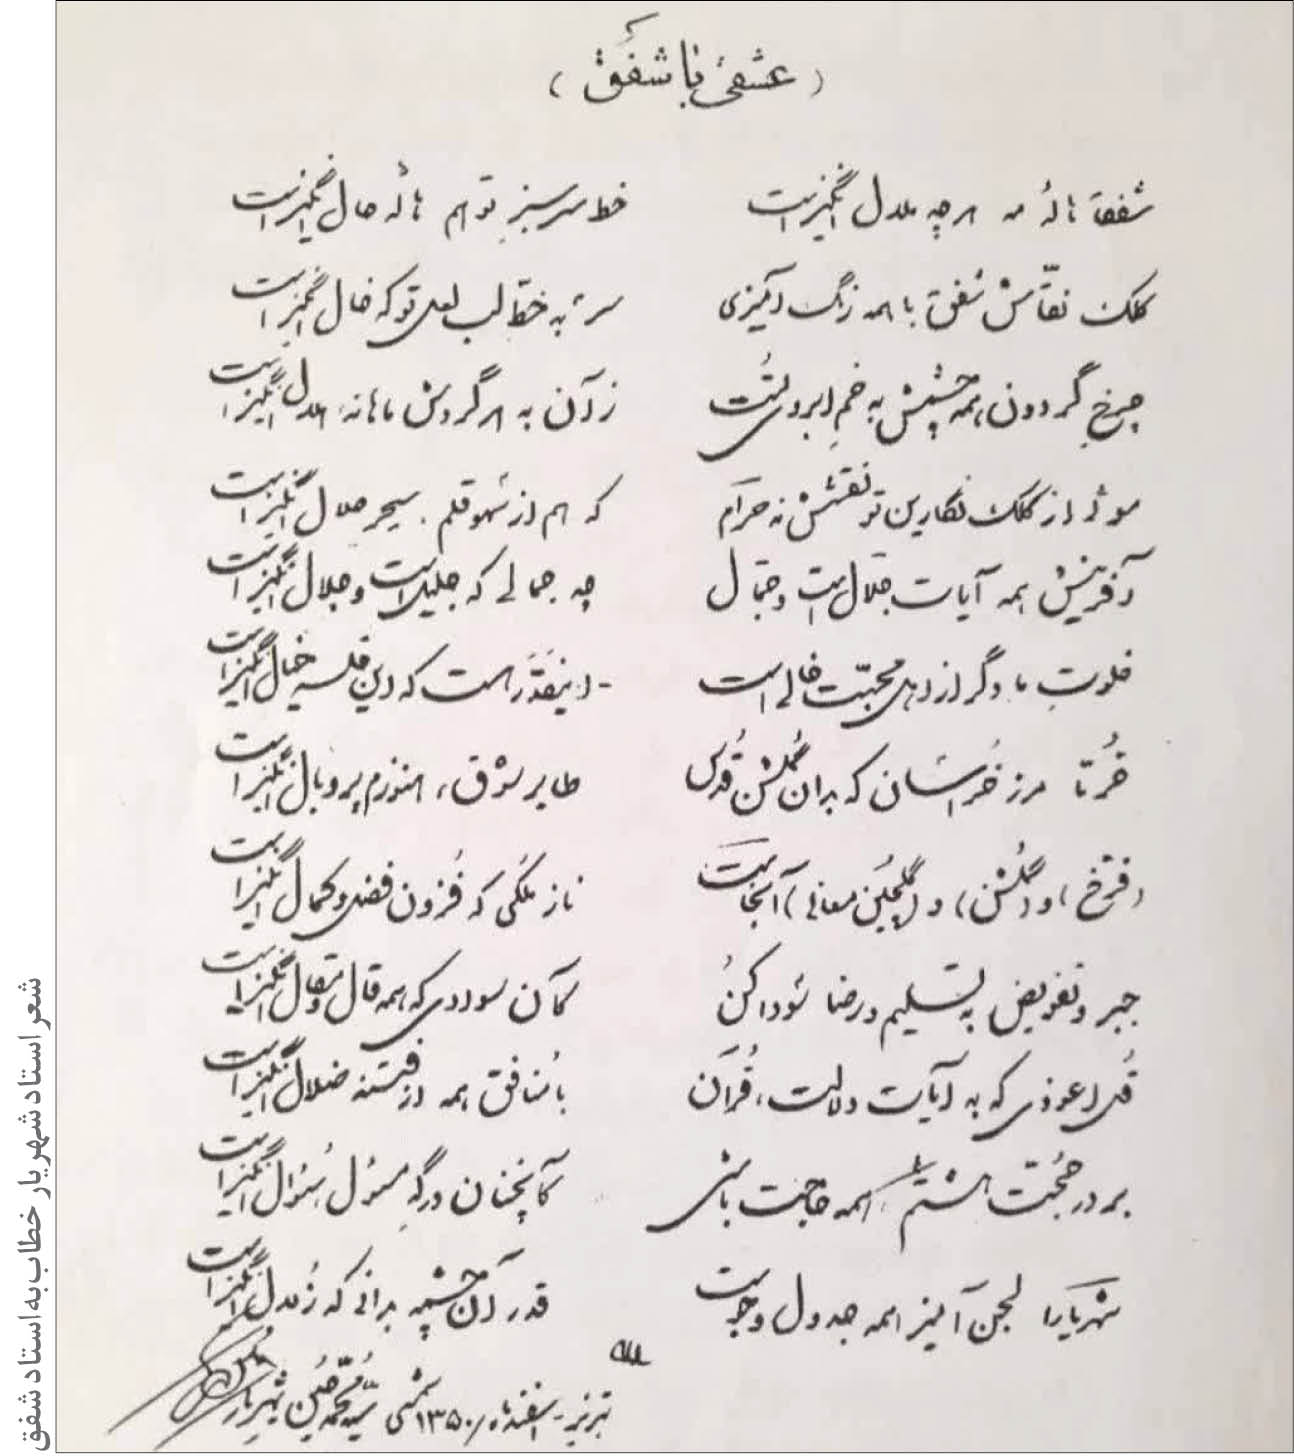 ( عشقی با شفق )
شفقا هالهٔ مه هر چه هلال انگیز است خط سر سبز تو هم هالهٔ خال انگیز است
کلک نقّاش شفق با همه رنگ آمیزی به خطّ لب لعل تو که خال انگیز است
چرخ گردون، همه چشمش به خمِ ابروی تست زآن به هر گردش ماهانه، هلال انگیز است
از کلک نگارین تو نقشش نه حرام که هم از قلم سِحرِ حلال انگیز است
آفرینش همه آیات جلال است و جمال چه جمالی که جلیل است و جلال انگیز است
خلوتِ ما دگر از اهل محبّت خالی است اینقَدَر هست که این خیال انگیز است
خُرّما مرز خُراسان که بدان گُلشن قُدس طایر شوق، هنوزم پر و بال انگیز است
(فرّخ) و (گُلشن) و (گلچین معانی) آنجاست نازِ مُلکی که فُزون فضل و کمال انگیز است
جبر و تفویض به تسلیم و رضا سُودا کُن کآن سودا که همه قال و مقال انگیز است
قُل اعوذی که به آیات ولایت، قُرآن با مُنافق همه از فتنه ضلال انگیز است
بر در حُجّت هشتم، همه حاجت باشی کآنچنان درگهِ مسئول سُئوال انگیز است
شهریارا لجن آمیز همه جدول و جوست قدر آن چشمه بدانی که زُلال انگیز است
تبریز - اسفندماه ۱۳۵۰ شمسی سیّد محمّد حسین شهریار
شعر استاد شهریار خطاب به استاد شفق